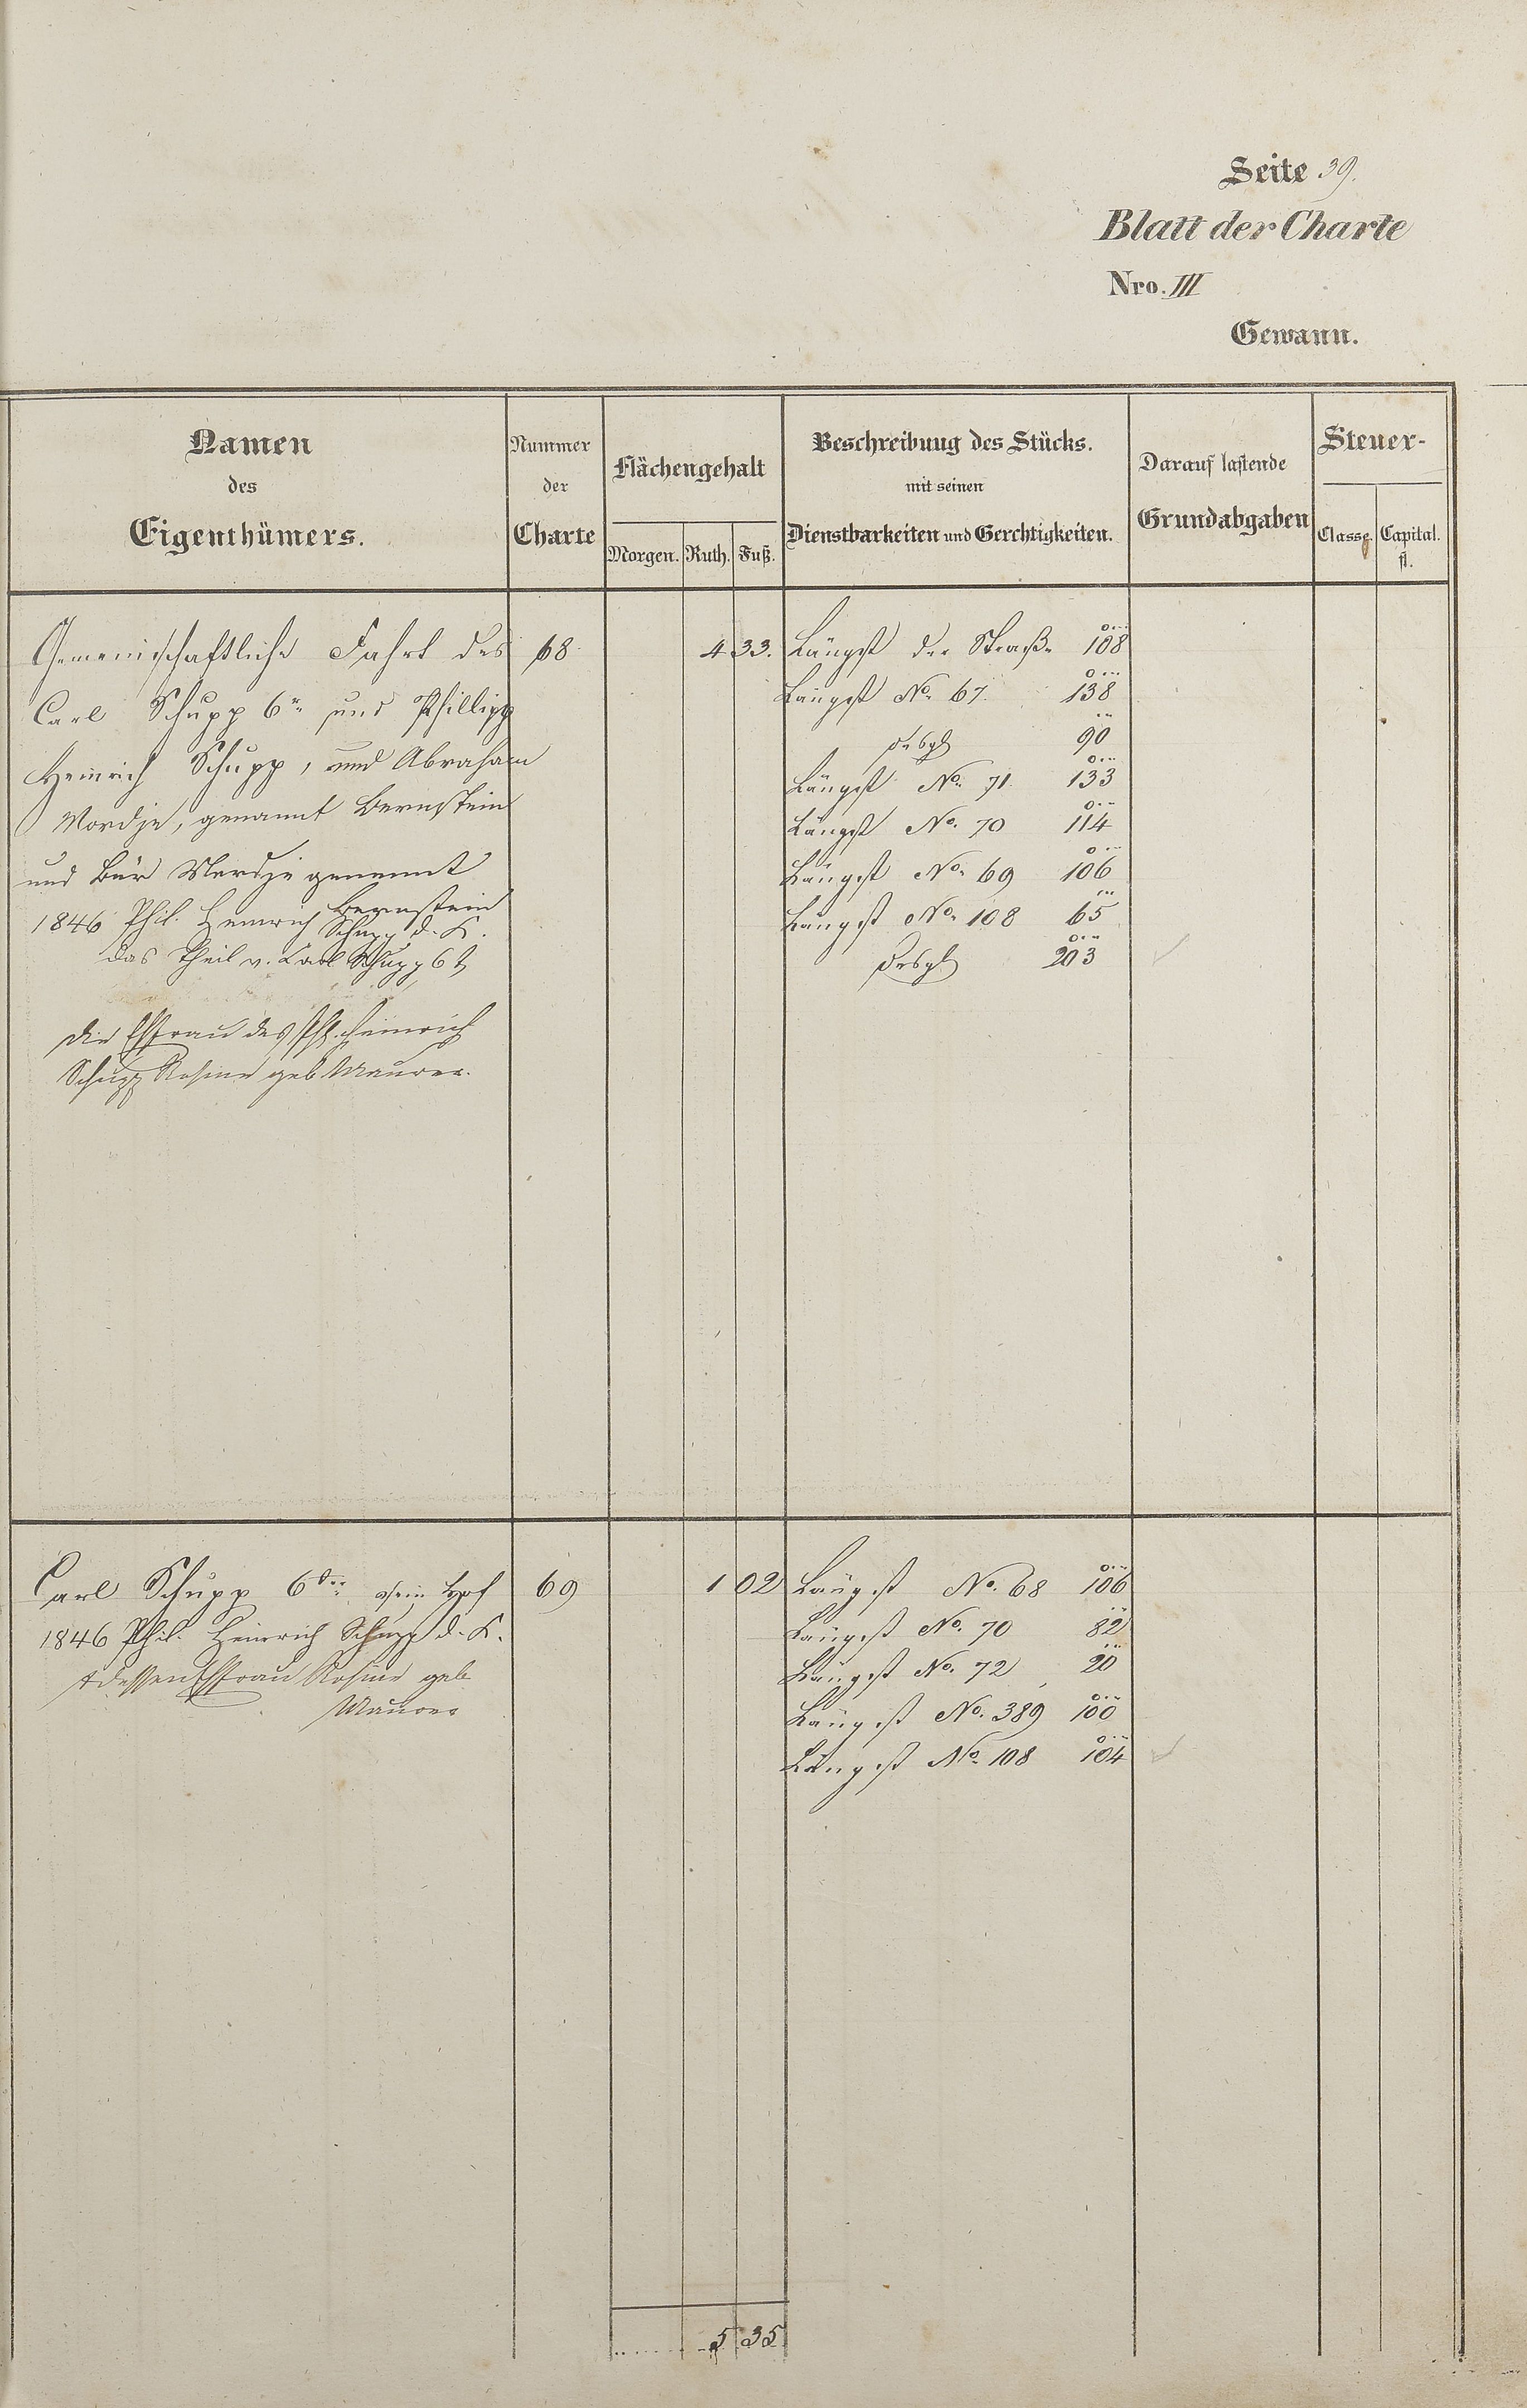 Seite 39.
Blatt der Charte
Nro. III
Gewann.
Namen
des
Eigenthümers.
Nummer
der
Charte
Flächengehalt
Morgen. Ruth. Fuß.
Beschreibung des Stücks.
mit seinen
Dienstbarkeiten und Gerchtigkeiten.
Darauf lastende
Grundabgaben
Steuer-
Classe. Capital.
fl.
Gemeinschaftliche Fahrt des 68 4 33. Längst der Straße 108
Carl Schupp 6r und Phillipp Längst No. 67. 138
desgl 90
Heinrich Schupp, und Abraham Längst No. 71. 133
Mordje, genannt Bernstein Längst No. 70 114
und Bär Mordje genannt Längst No. 69 106
Bernstein
1846 Phil. Heinrich Schupp d. K. Längst No. 108 65
das Theil v. Carl Schupp 6t desgl 203
die Ehfrau des Ph. Heinrich
Schupp Rosine geb Maurer.
Carl Schupp 6ter sein Hof 69 1 02 Längst No. 68 106
1846 Phil. Heinrich Schupp d. K. Längst No. 70 82
dessen Ehfrau Rosine geb Längst No. 72 20
Maurer Längst No. 389 100
Längst No. 108 104
5 35